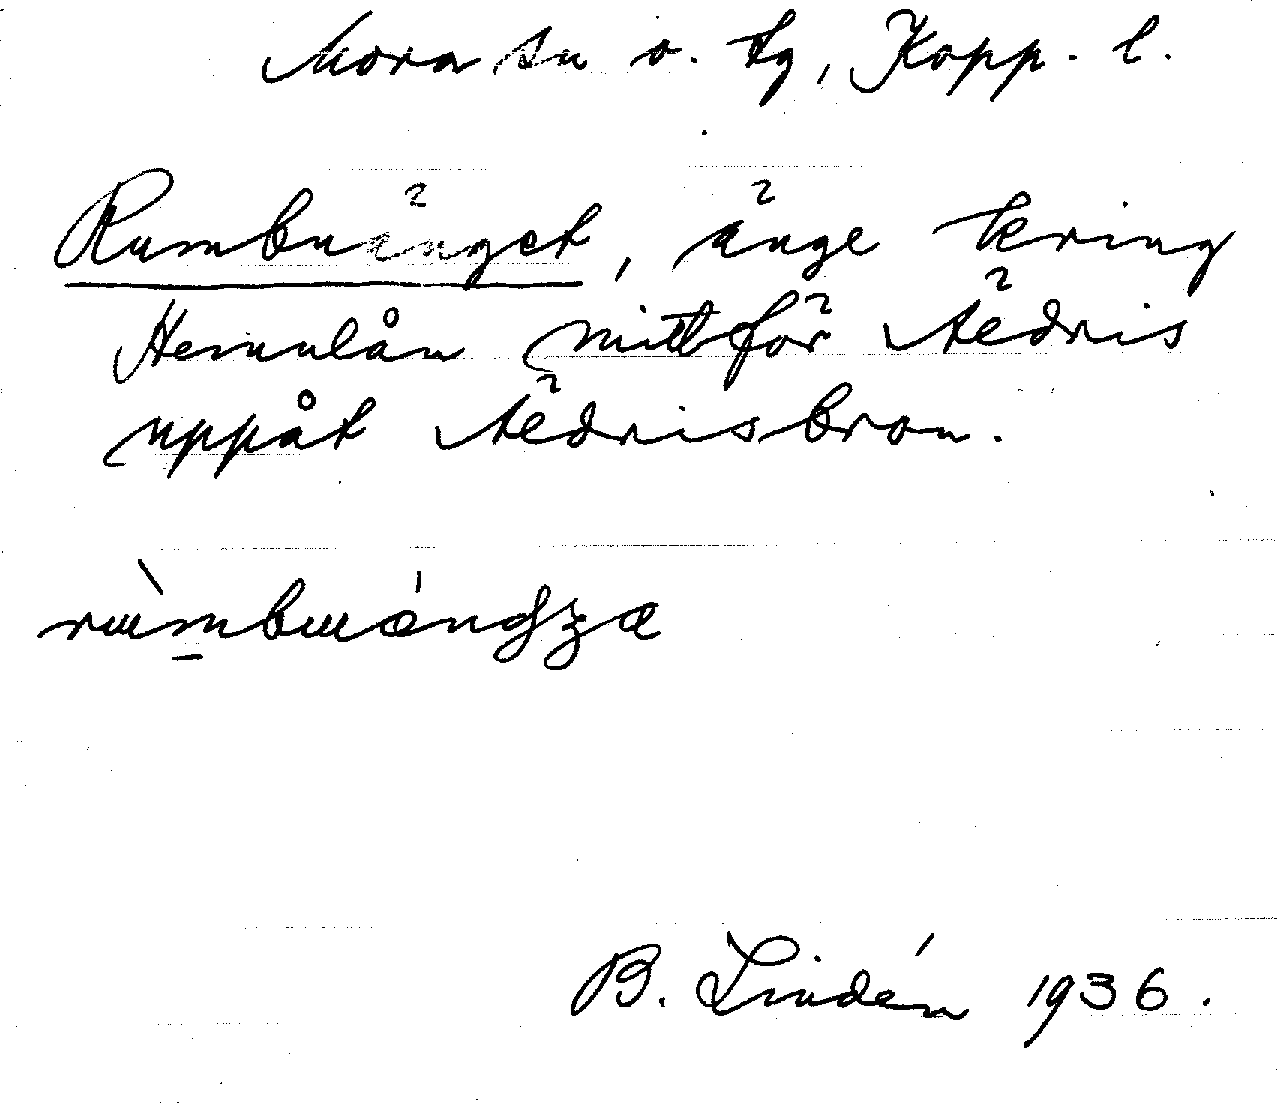 Mora sn o. tg, Kopp. l.
Rumbuänget, änge kring
Hemulån mittför Äcdris
uppåt Äcdrisbron.
rɯ̀mbɯǽndʒæ
B. Lindén 1936.